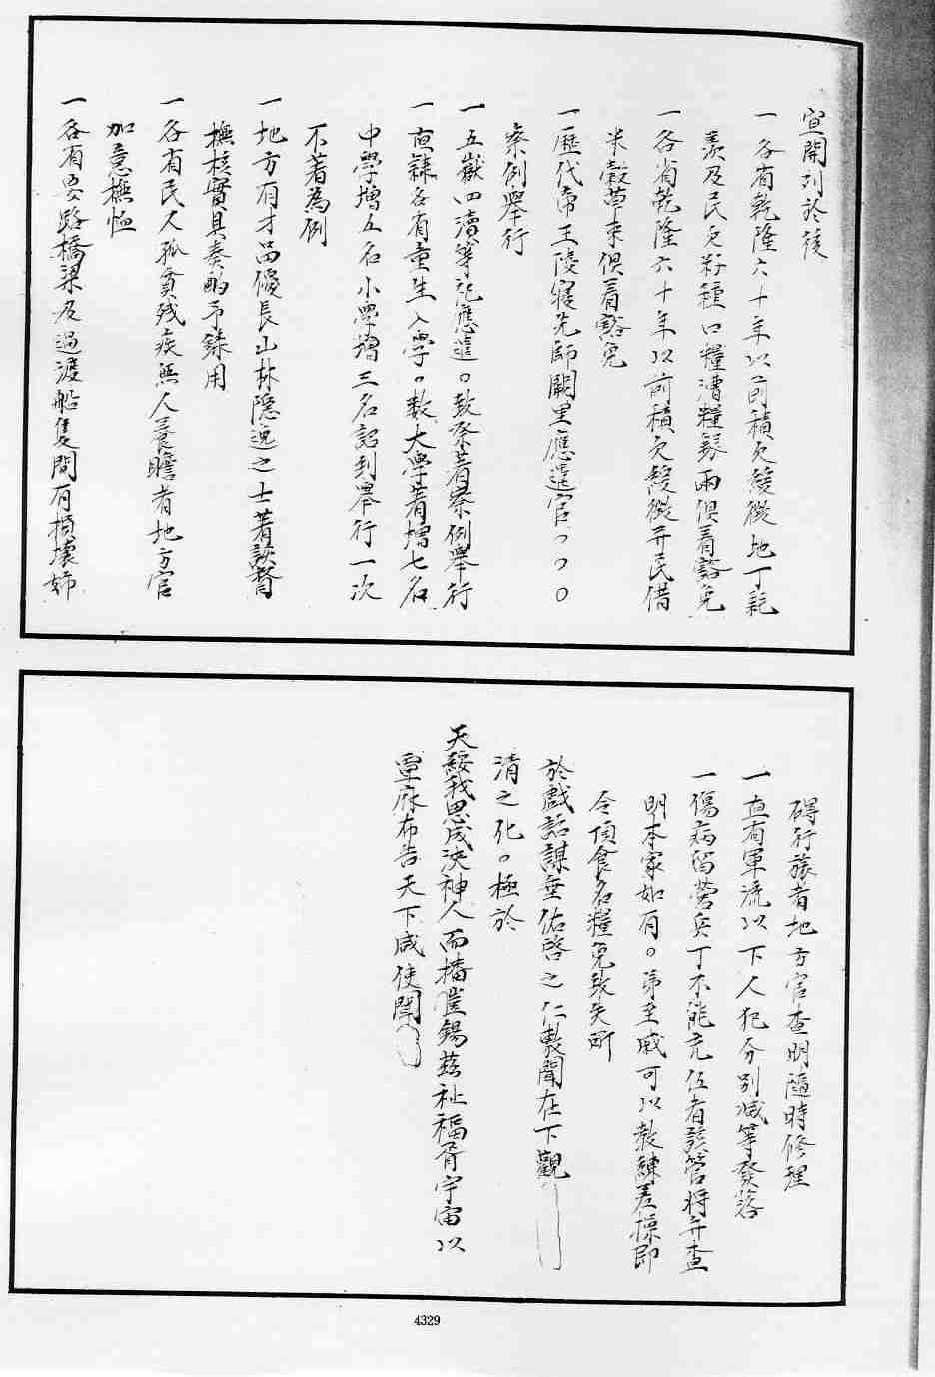 宜開列於後
一各省乾隆六十年以前積欠緩徵地丁耗
羨及民欠籽種口糧漕糧銀兩俱着豁免
一各省乾隆六十年以前積欠緩徵并民借
米穀草束俱着豁免
一歷代帝王陵寢先師闕里應遣官
察例舉行
一五嶽四瀆等祀應遣。致祭着察例舉行
一直隸各省童生入學。數大學著增七名
中學增五名小學增三名詔到舉行一次
不著為例
一地方有才品優長山林隱逸之士著該督
撫核實具奏酌予錄用
一各省民人孤貧殘疾無人養贍者地方官
加意撫恤
一各省要路橋梁及過渡船隻間有損壞妨
碍行旅者地方官查明隨時修理
一直省軍流以下人犯分別減等發落
一傷病留營兵丁不能充伍者該營將弁查
明本家如有。弟至戚可以教練差操即
令頂食名糧免致失所
於戲詒謀垂佑啓之仁製聞在下觀
清之化。極於
天綏我思成決神人而播誰錫茲祉福胥宇宙以
覃庥布告天下咸使聞
4329